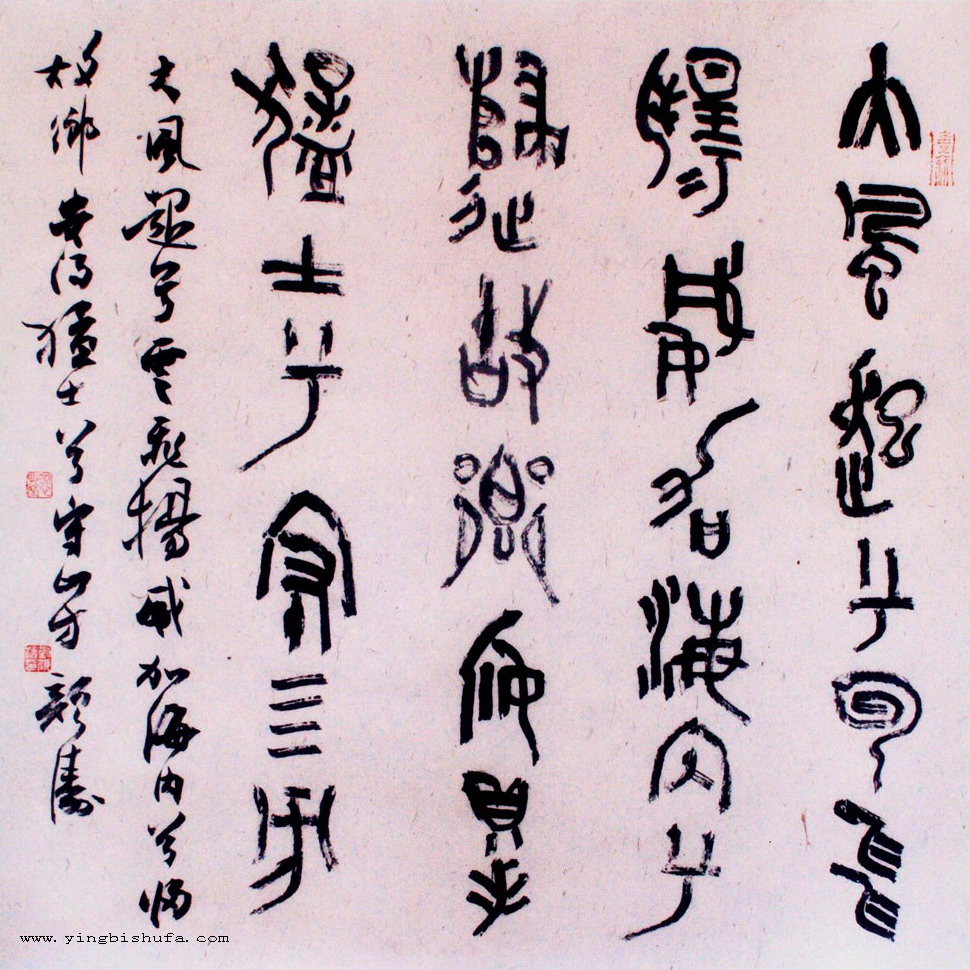 大風起兮雲飛
揚威加海内兮
歸故鄉安得
猛士兮守四方
大風起兮雲飛揚威加海内兮歸
故鄉安得猛士兮守四方 顏濤
www.yingbishufa.com